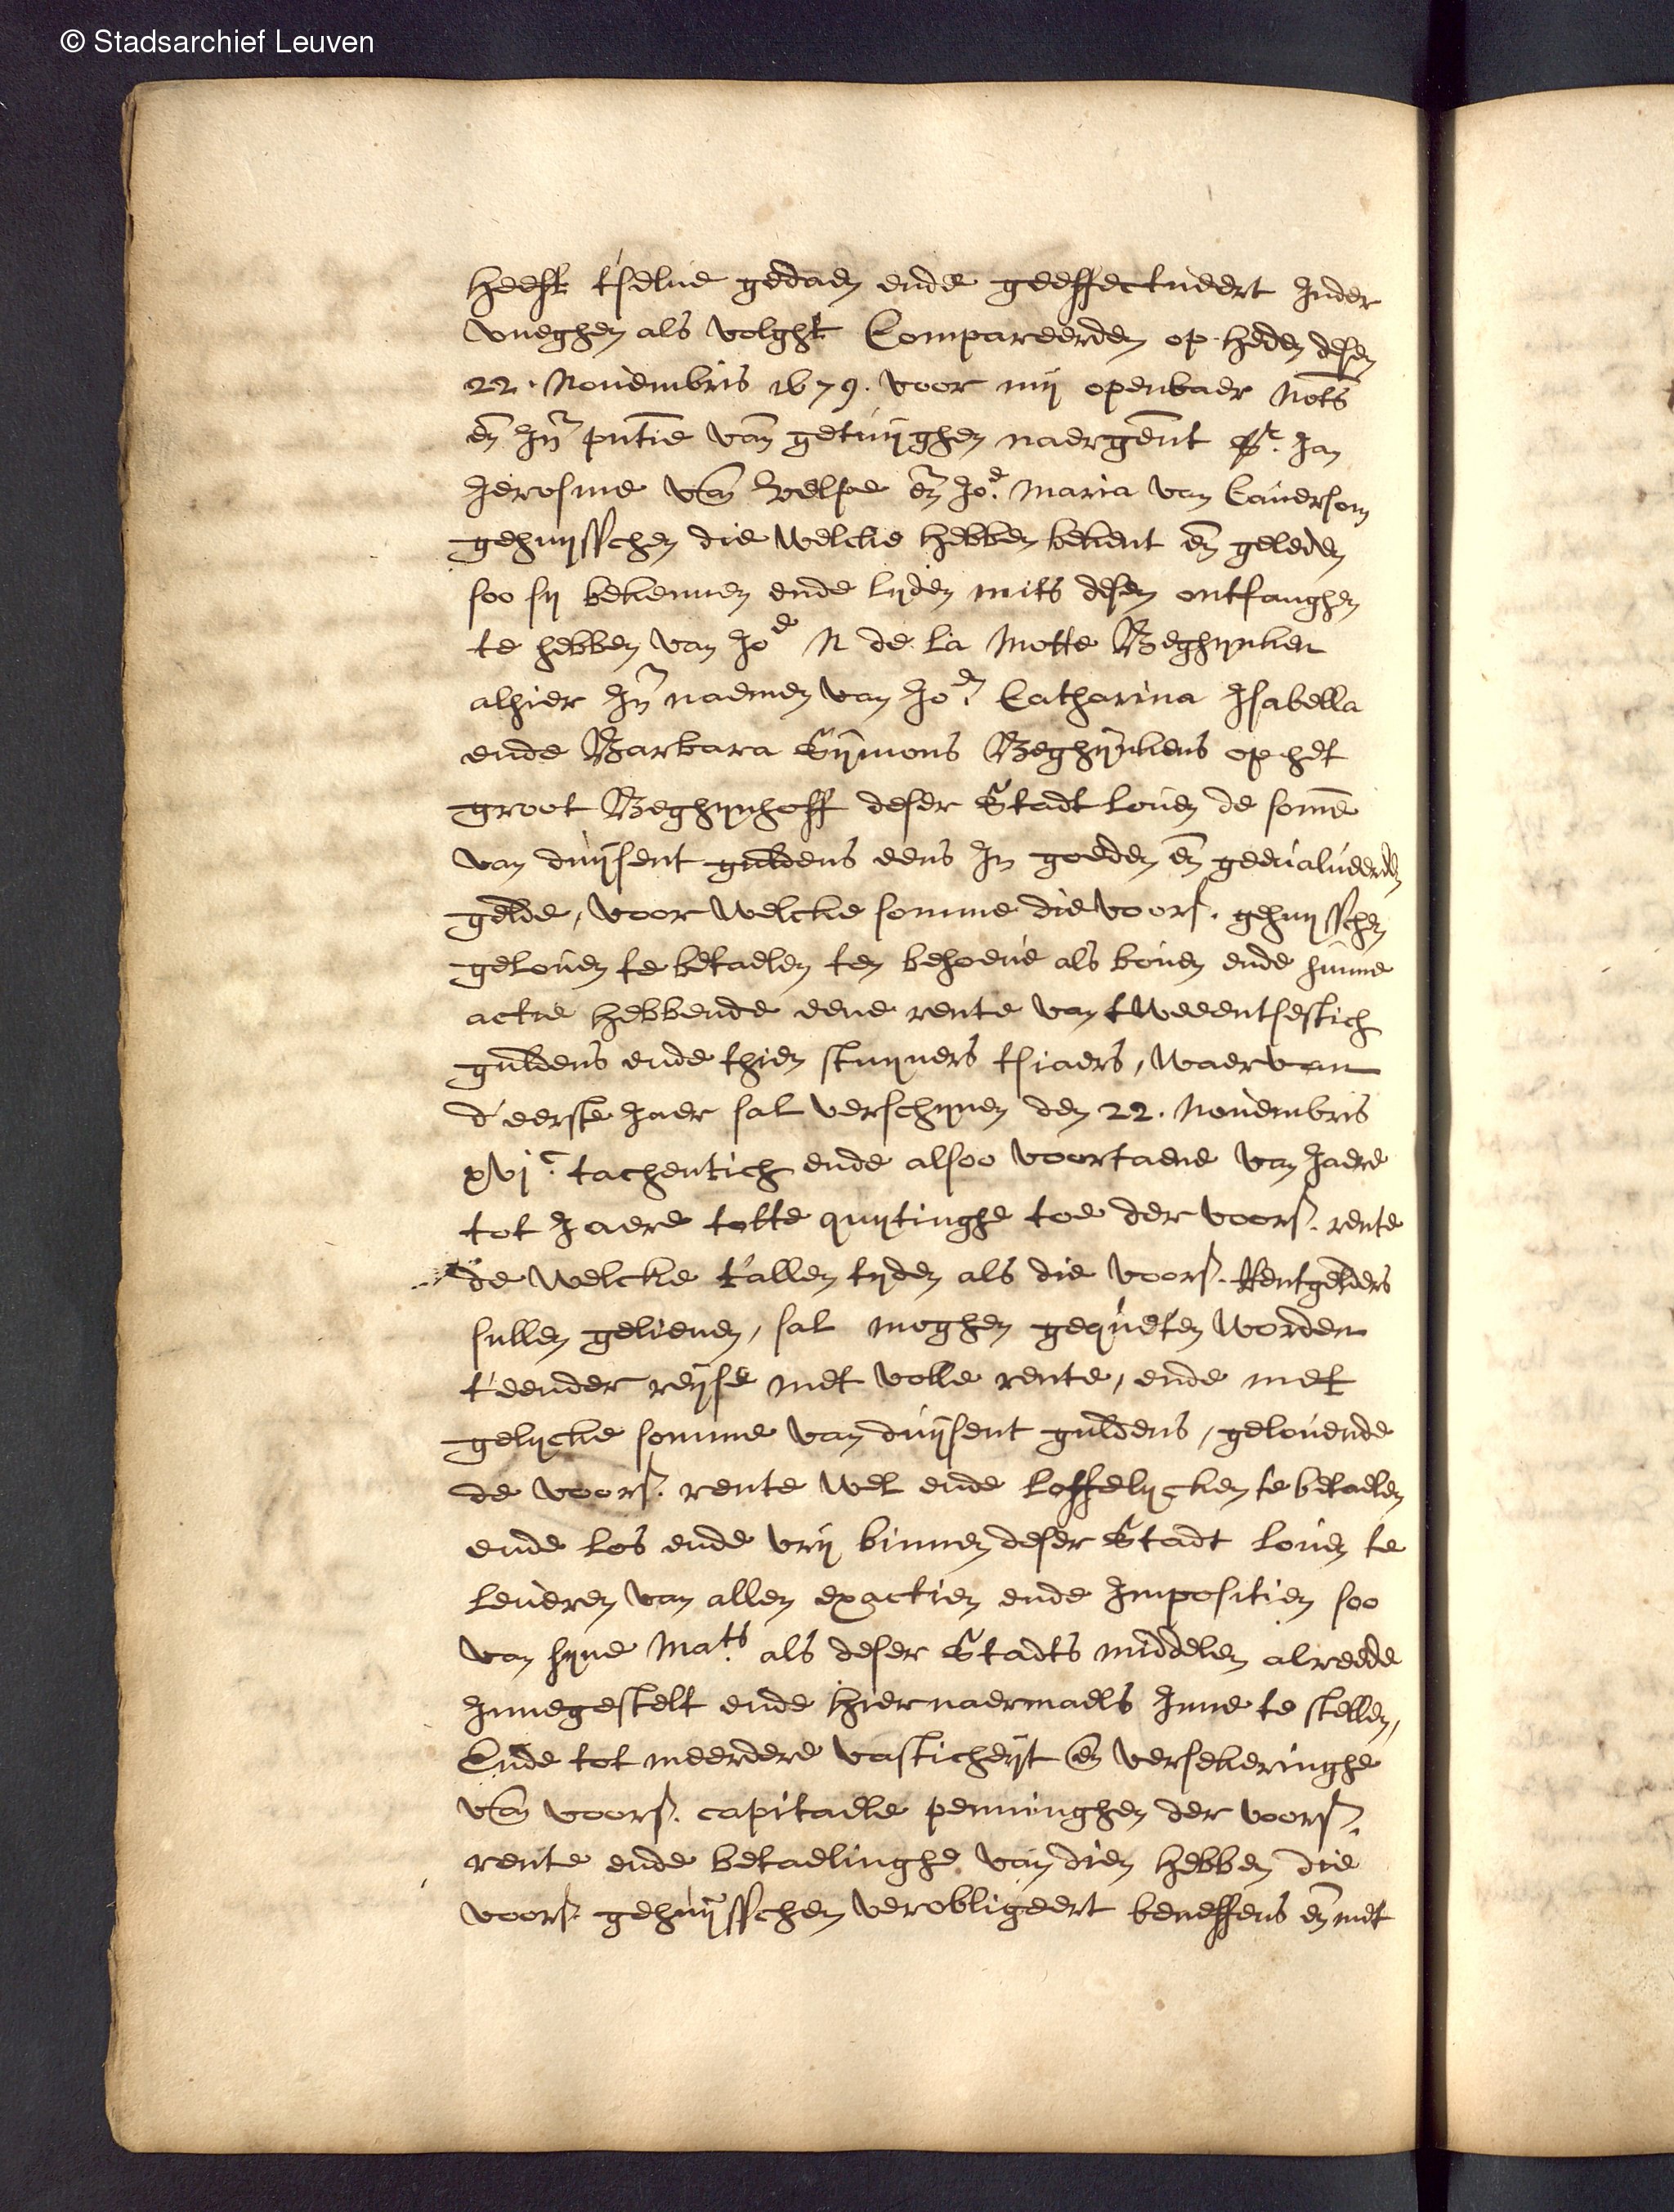 © Stadsarchief Leuven
heeft t'selue gedaen ende geeffectueert Inder
vueghen als volght Compareerden op heden desen
22. Nouembris 1679. voor mij openbaer Nots
en In pntie van getuijghen naergent Sr. Jan
Jerosme van Velpe en Joe. Maria van Cauersom
gehuijsschen die welcke hebben bekent en geleden
soo sij bekennen ende lijden mits desen ontfanghen
te hebben van Joe N de la Motte Beghijnken
alhier In naemen van Joen. Catharina Isabella
ende Barbara Sijmons Beghijnkens op het
groot Beghijnhoff deser Stadt louen de some
van duijsent guldens eens In goeden en geeualueerden
gelde, voor welcke somme die voors. gehuijsschen
gelouen te betaelen ten behoeue als bouen ende hunne
actie hebbende eene rente van tweeentsestich
guldens ende thien stuijuers tsiaers, waer van
d'eerste Jaer sal verschijnen den 22. Nouembris
xvjc. tachentich ende alsoo voortaene van Jaere
tot Jaere totte quijtinghe toe der voors. rente
de welcke t'allen tijden als die voors. Rentgelders
sullen gelieuen, sal moghen gequeten worden
t'eender reijse met volle rente, ende met
gelijcke somme van duijsent guldens, gelouende
de voors. rente wel ende loffelijcken te betaelen
ende los ende vrij binnen deser Stadt louen te
leueren van allen exactien ende Impositien soo
van sijne Mats. als deser Stadts middelen alreede
Innegestelt ende hiernaermaels Inne te stellen,
Ende tot meerdere vasticheijt en versekeringhe
van voors. capitaele penninghen der voors.
rente ende betaelinghe van dien hebben die
voors. gehuijsschen verobligeert beneffens en met